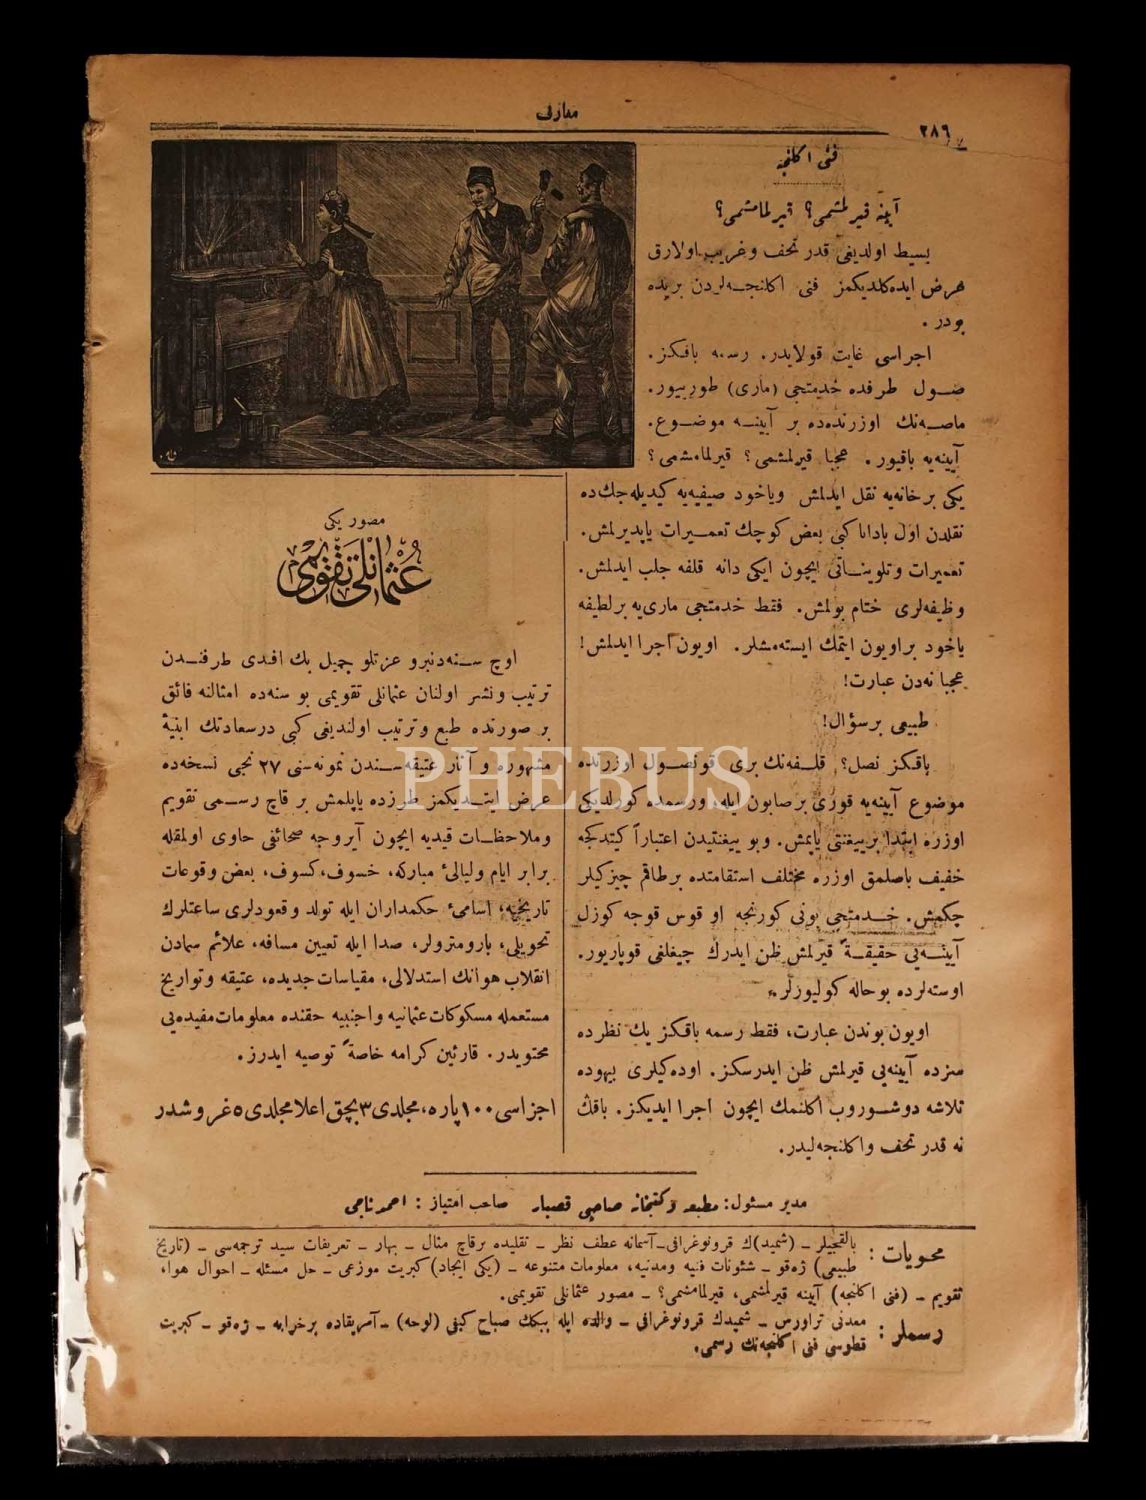 معارف
٢٨٦
فنى اكلنجه
آيينه قيرلمشمى؟ قيرلمامشمى؟
بسيط اولديغى قدر تحف وغريب اولارق
عرض ايده‌كلديكمز فنى اكلنجه‌لردن بريده
بودر.
اجراسى غايت قولايدر. رسمه باقكز.
صول طرفده خدمتجى (مارى) طوربيور.
ماصه‌نك اوزرنده‌ده بر آيينه موضوع.
آيينه‌يه باقيور. عجبا قيرلمشمى؟ قيرلمامشمى؟
يكى بر خانه‌يه نقل ايدلمش وياخود صيفيه‌يه كيديله‌جك‌ده
نقلدن اول بادانا كبى بعض كوچك تعميرات ياپديرلمش.
تعميرات وتلوينات ايچون ايكى دانه قلفه جلب ايدلمش.
وظيفه‌لرى ختام بولمش. فقط خدمتجى مارى‌يه بر لطيفه
ياخود بر اويون ايتمك ايسته‌مشلر. اويون اجرا ايدلمش!
عجبا نه‌دن عبارت!
طبيعى بر سؤال!
باقكز نصل؟ قلفه‌نك برى قونصول اوزرنده
موضوع آيينه‌يه قورى بر صابون ايله، ورسمده كورلديكى
اوزره ابتدا بر ييغنتى ياپمش. وبو ييغنتيدن اعتباراً كيتدكجه
خفيف باصلمق اوزره مختلف استقامتده بر طاقم چيزكيلر
چكمش. خدمتجى بونى كورنجه او قوس قوجه كوزل
آيينه‌يى حقيقةً قيرلمش ظن ايدرك چيغلغى قوپاريور.
اوسته‌لرده بو حاله كوليورلر.
اويون بوندن عبارت، فقط رسمه باقكز يك نظرده
سزده آيينه‌يى قيرلمش ظن ايدرسكز. اوده‌كيلرى بيهوده
تلاشه دوشوروب اكلنمك ايچون اجرا ايديكز. باقك
نه قدر تحف واكلنجه‌ليدر.
مصور يكى
عثمانلى تقويمى
اوچ سنه‌دنبرو عزتلو جميل بك افندى طرفندن
ترتيب ونشر اولنان عثمانلى تقويمى بو سنه‌ده امثالنه فائق
بر صورتده طبع وترتيب اولنديغى كبى درسعادتك ابنيهٔ
مشهوره و آثار عتيقه‌سندن نمونه‌سنى ٢٧ نجى نسخه‌ده
عرض ايتديكمز طرزده ياپلمش بر قاچ رسمى تقويم
وملاحظات قيديه ايچون آيروجه صحائفى حاوى اولمقله
برابر ايام وليالئ مباركه، خسوف، كسوف، بعض وقوعات
تاريخيه، اسامئ حكمداران ايله تولد وقعودلرى ساعتلرك
تحويلى، بارومترولر، صدا ايله تعيين مسافه، علائم سمادن
انقلاب هوانك استدلالى، مقياسات جديده، عتيقه وتواريخ
مستعمله مسكوكات عثمانيه واجنبيه حقنده معلومات مفيده‌يى
محتويدر. قارئين كرامه خاصةً توصيه ايدرز.
اجزاسى ١٠٠ پاره، مجلدى ٣ بچق اعلا مجلدى ٥ غروشدر
مدير مسئول: مطبعه وكتبخانه صاحبى قصبار صاحب امتياز: احمد ناجى
محويات: بالقجيلر ـ (شميد)ك قرونوغرافى ـ آسمانه عطف نظر ـ تقليده برقاچ مثال ـ بهار ـ تعريفات سيد ترجمه‌سى ـ (تاريخ
طبيعى) ژه‌قو ـ شئونات فنيه ومدنيه، معلومات متنوعه ـ (يكى ايجاد) كبريت موزعى ـ حل مسئله ـ احوال هوا،
تقويم ـ (فنى اكلنجه) آيينه قيرلمشمى، قيرلمامشمى؟ ـ مصور عثمانلى تقويمى.
رسملر: معدنى تراورس ـ شميدك قرونوغرافى ـ والده ايله ببكك صباح كيفى (لوحه) ـ آمريقاده بر خرابه ـ ژه‌قو ـ كبريت
قطوسى فنى اكلنجه‌نك رسمى.
PHEBUS